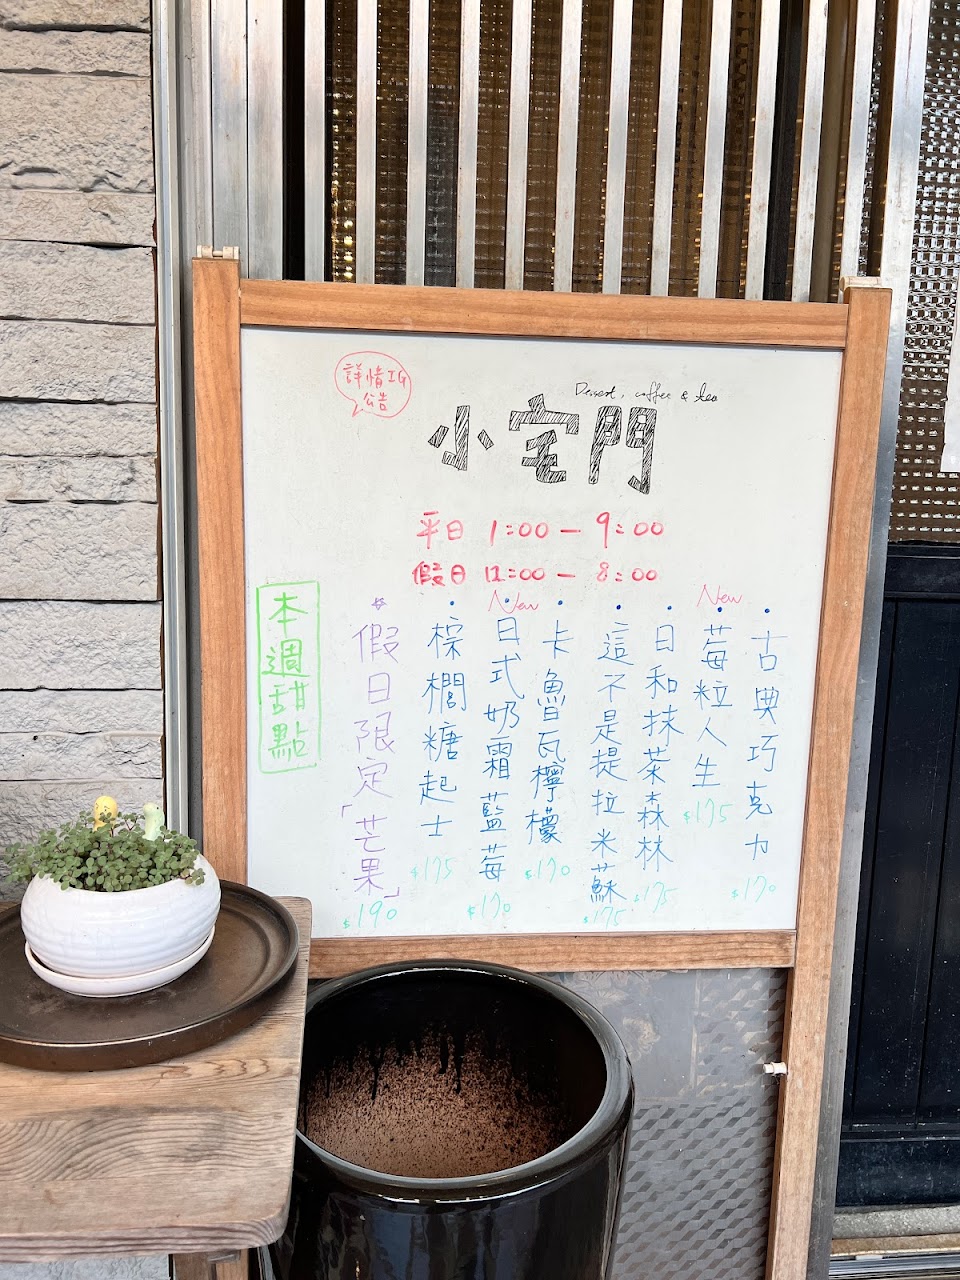 詳情IG
公告
Dessert, coffee & tea
小宅門
平日 1:00 — 9:00
假日 12:00 — 8:00
本週甜點
古典巧克力
$170
New
莓粒人生
$175
日和抹茶森林
$175
這不是提拉米蘇
$175
卡魯瓦檸檬
$170
New
日式奶霜藍莓
$170
棕櫚糖起士
$175
假日限定「芒果」
$190